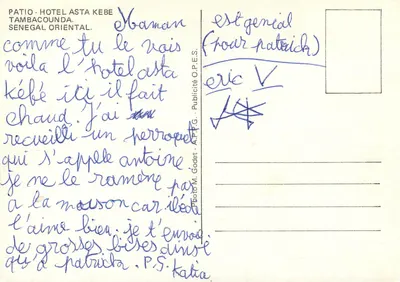 PATIO - HOTEL ASTA KEBE
TAMBACOUNDA.
SENEGAL ORIENTAL.
Maman
comme tu le vois
voila l'hotel asta
kébé ici il fait
chaud. J'ai
recueilli un perroquet
qui s'appele antoine
je ne le ramène pas
à la maison car
l'aime bien. je t'envoi
de grosses bises dinsi
qu'a patrick. P.S. Katia
est genial
(pour patrick)
eric V
Photo M. Godet - A.P.G. - Publicité O.P.E.S.